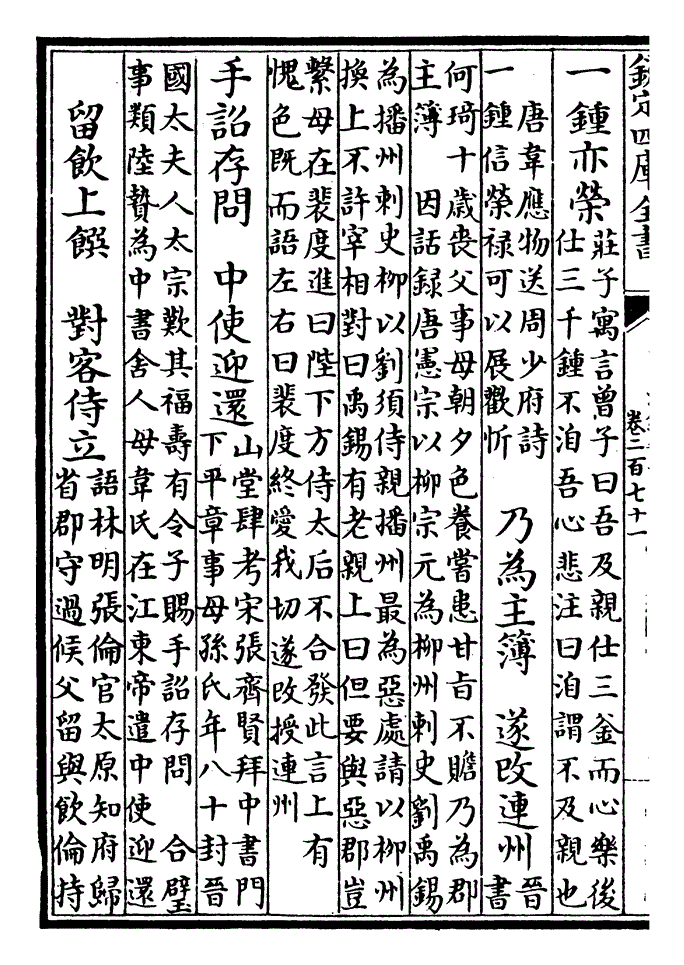 欽定四庫全書
卷二百七十一
一鍾亦榮 莊子寓言曾子曰吾及親仕三釡而心樂後
仕三千鍾不洎吾心悲注曰洎謂不及親也
唐韋應物送周少府詩
一鍾信榮禄可以展歡忻
乃為主簿 遂改連州 晉
書
何琦十歳喪父事母朝夕色養嘗患甘旨不贍乃為郡
主簿 因話録唐憲宗以柳宗元為柳州刺史劉禹錫
為播州刺史柳以劉須侍親播州最為惡處請以柳州
換上不許宰相對曰禹錫有老親上曰但要與惡郡豈
繫母在裴度進曰陛下方侍太后不合發此言上有
愧色既而語左右曰裴度終愛我切遂改授連州
手詔存問 中使迎還 山堂肆考宋張齊賢拜中書門
下平章事母孫氏年八十封晉
國太夫人太宗歎其福壽有令子賜手詔存問 合璧
事類陸贄為中書舍人母韋氏在江東帝遣中使迎還
留飲上饌 對客侍立 語林明張倫官太原知府歸
省郡守過候父留與飲倫持